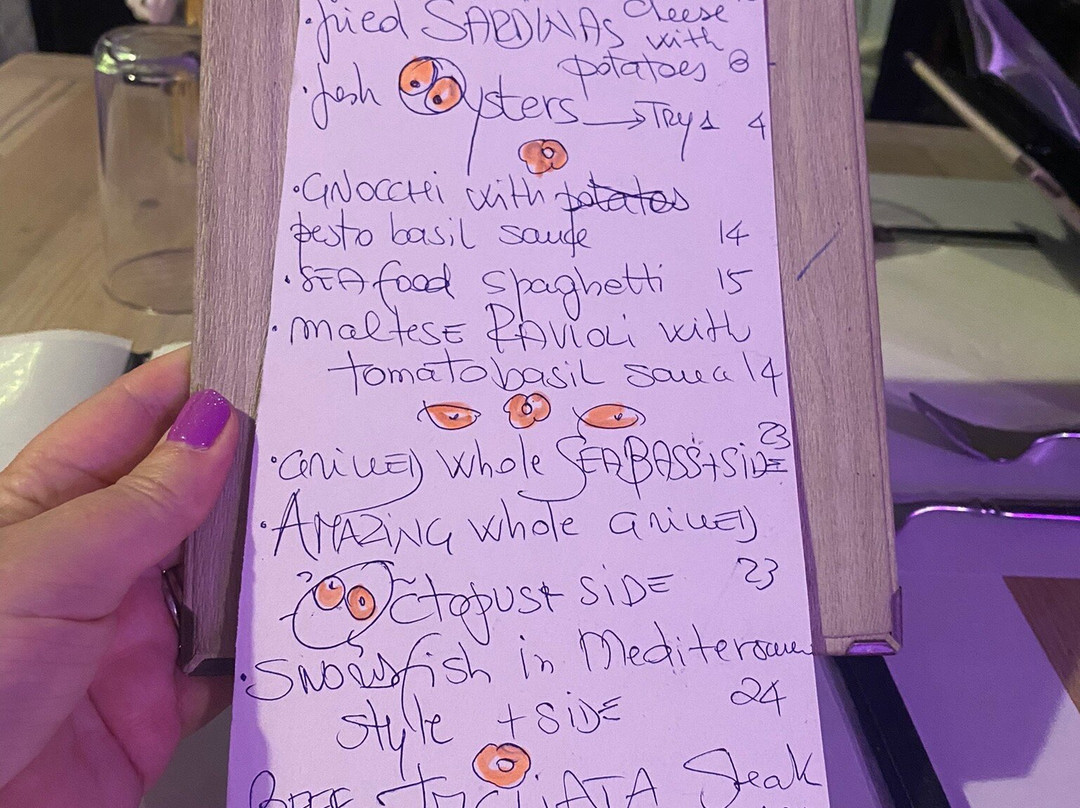 ·fried SARDINAs cheese
with
potatoes 8
·fresh Oysters → Try 1 4
·GNOCCHi with potatos
pesto basil sauce 14
·SEA food spaghetti 15
·maltESE RAVIOLi with
tomato basil sauce 14
·GRILLED whole SEABASS+SiDE 23
·AMAZiNG whole GRiLLED
Octopus+ SiDE 23
·SWORDfish in Mediteranean
style + SiDE 24
BEEF TAGLIATA Steak